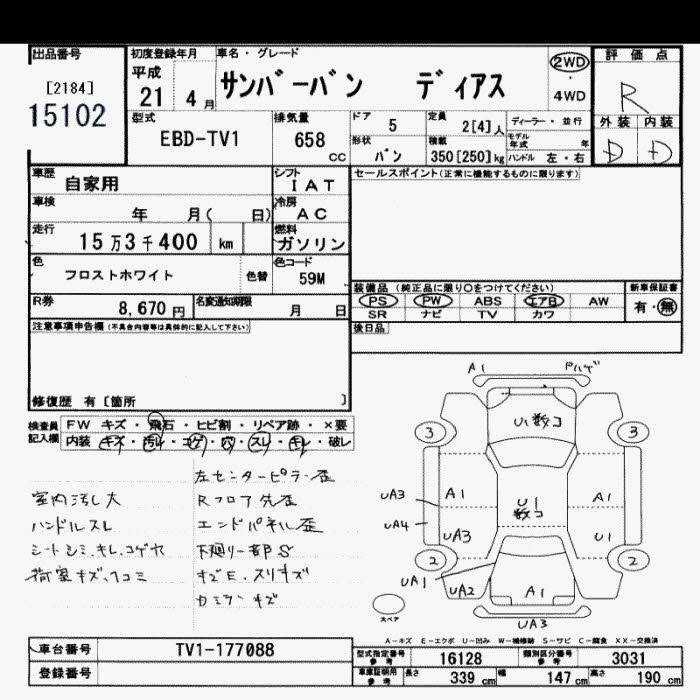 出品番号
[2184]
15102
初度登録年月
平成
21
4 月
車名・グレード
サンバーバン ディアス
2WD
4WD
評価点
R
型式
EBD-TV1
排気量
658
CC
ドア
5
定員
2[4]人
ディーラー・並行
モデル年式 年
外装 内装
D D
形状
バン
積載
350[250]kg
ハンドル 左・右
車歴
自家用
シフト
I AT
セールスポイント(正常に機能するものに限ります)
車検
年 月( 日)
冷房
AC
走行
15万3千400 km
燃料
ガソリン
色
フロストホワイト
色替
色コード
59M
装備品(純正品に限り○をつけてください)
新車保証書
PS PW ABS エアB AW
有・無
SR ナビ TV カワ
R券
8,670円
名変通知期限
月 日
後日品
注意事項申告欄(不具合内容等は具体的に記入して下さい)
修復歴 有〔箇所 〕
検査員記入欄
FW キズ・飛石・ヒビ割・リペア跡・×要
内装 キズ・汚れ・コゲ・穴・スレ・キレ・破レ
左センターピラー歪
室内汚し大
Rフロア先歪
ハンドルスレ
エンドパネル歪
シートシミ、キレ、コゲ穴
下廻リ一部S
荷室キズ、凹コミ
キズE、スリキズ
A1
ヤハゲ
U1数コ
3
3
UA3
A1
U1
数コ
A1
UA4
UA3
U1
2
2
UA1
UA2
A1
スペア
UA3
A-キズ E-エクボ U-凹み W-補修跡 S-サビ C-腐食 XX-交換済
車台番号
TV1-177088
型式指定番号
参考
16128
類別区分番号
参考
3031
登録番号
車庫証明用
参考
長さ
339 cm
幅
147 cm
高さ
190 cm